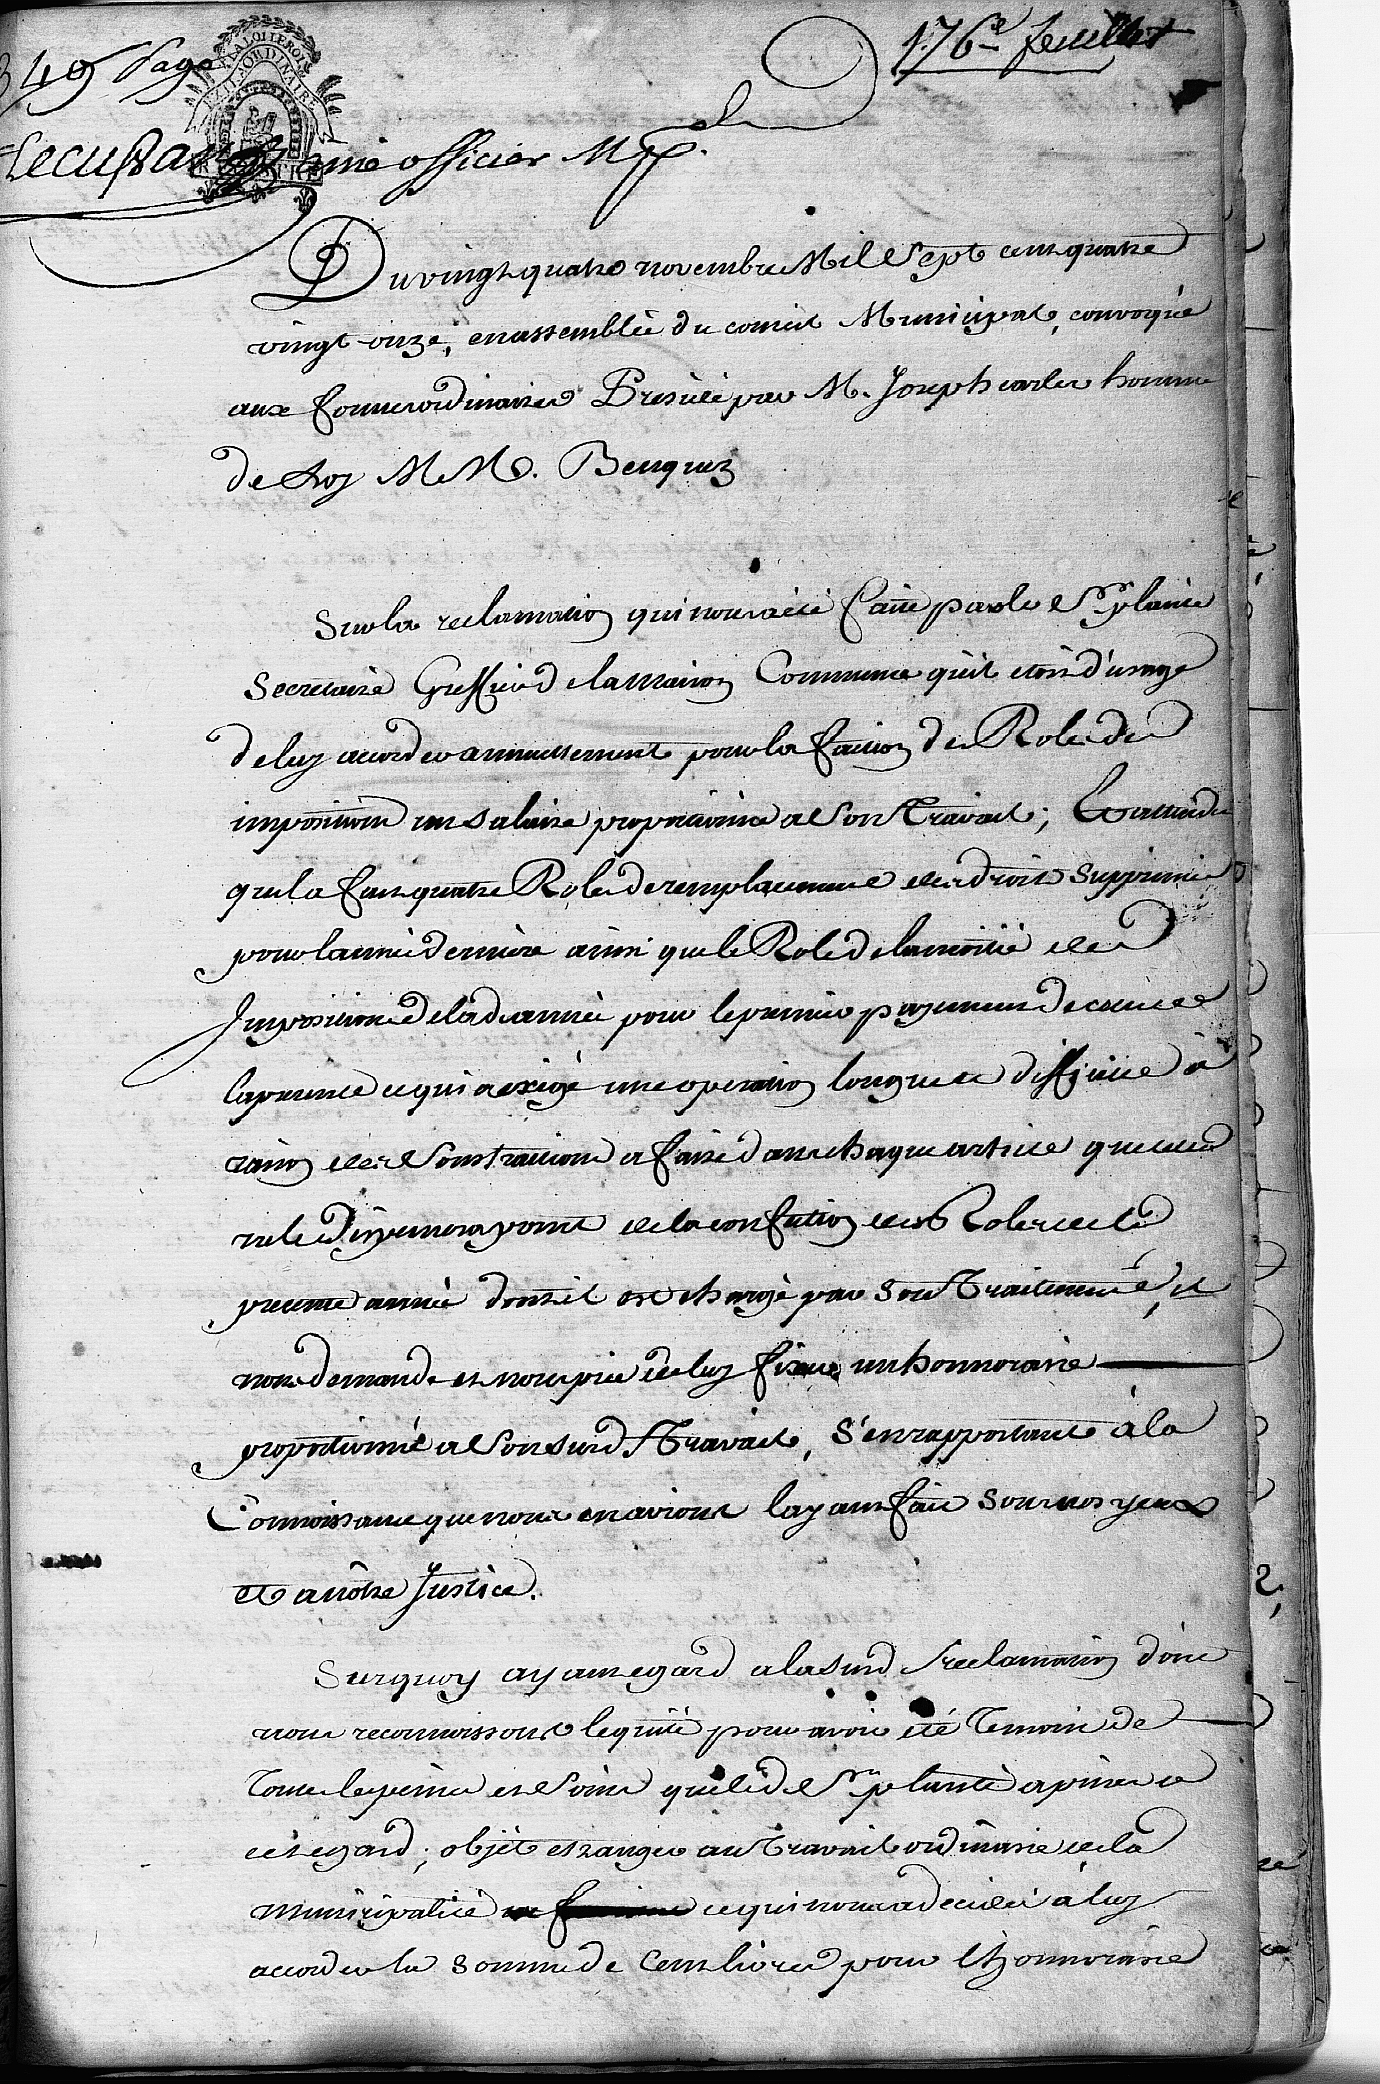 349 Page
176e feuillet
LA LOI LE ROI
EXTRAORDINAIRE
REGISTRE
officier Mpl.
Du vingt quatre novembre Mil Sept cent quatre
vingt onze, en assemblée du conseil Municipal, convoquée
aux formes ordinaires Présidé par M. Joseph carles homme
de Loy M M. Benquez
Sur la reclamation qui nous a été faitte par le Sr. planté
Secretaire Greffier de la Maison Commune quil etoit d'usage
de luy accorder annuellement pour la faction des Roles des
impositions un salaire proportionné a Son Travail; Et attendu
que la fait quatre Roles de remplacement des droits Supprimés
pour lannée derniere ainsi que le Role de la moitié des
Impositions de lad. année pour le premier payement de celles
la presente ce qui a exigé une operation longue et difficille à
raison des Soustractions a faire dans chaque article que cella
ne le dispensera point de la confection des Roles de la
presente année dont il est chargé par Son Traitement, il
nous demande et nous prie de luy fixer un honnoraire
proportionné a Son susd. Travail, S'en rapportant à la
Connoissance que nous en avions layant fait Sous nos yeux
et a nôtre Justice.
Sur quoy ayant egard a la susd. reclamation dont
nous reconnoissons lequité pour avoir été Temoins de
Toutes les peines et Soins que led. Sr. planté a prises a
cet egard; objèt etranger au Travail ordinaire de la
municipalité ce qui nous a decidés à luy
accorder la Somme de Cent livres pour l'honnoraire